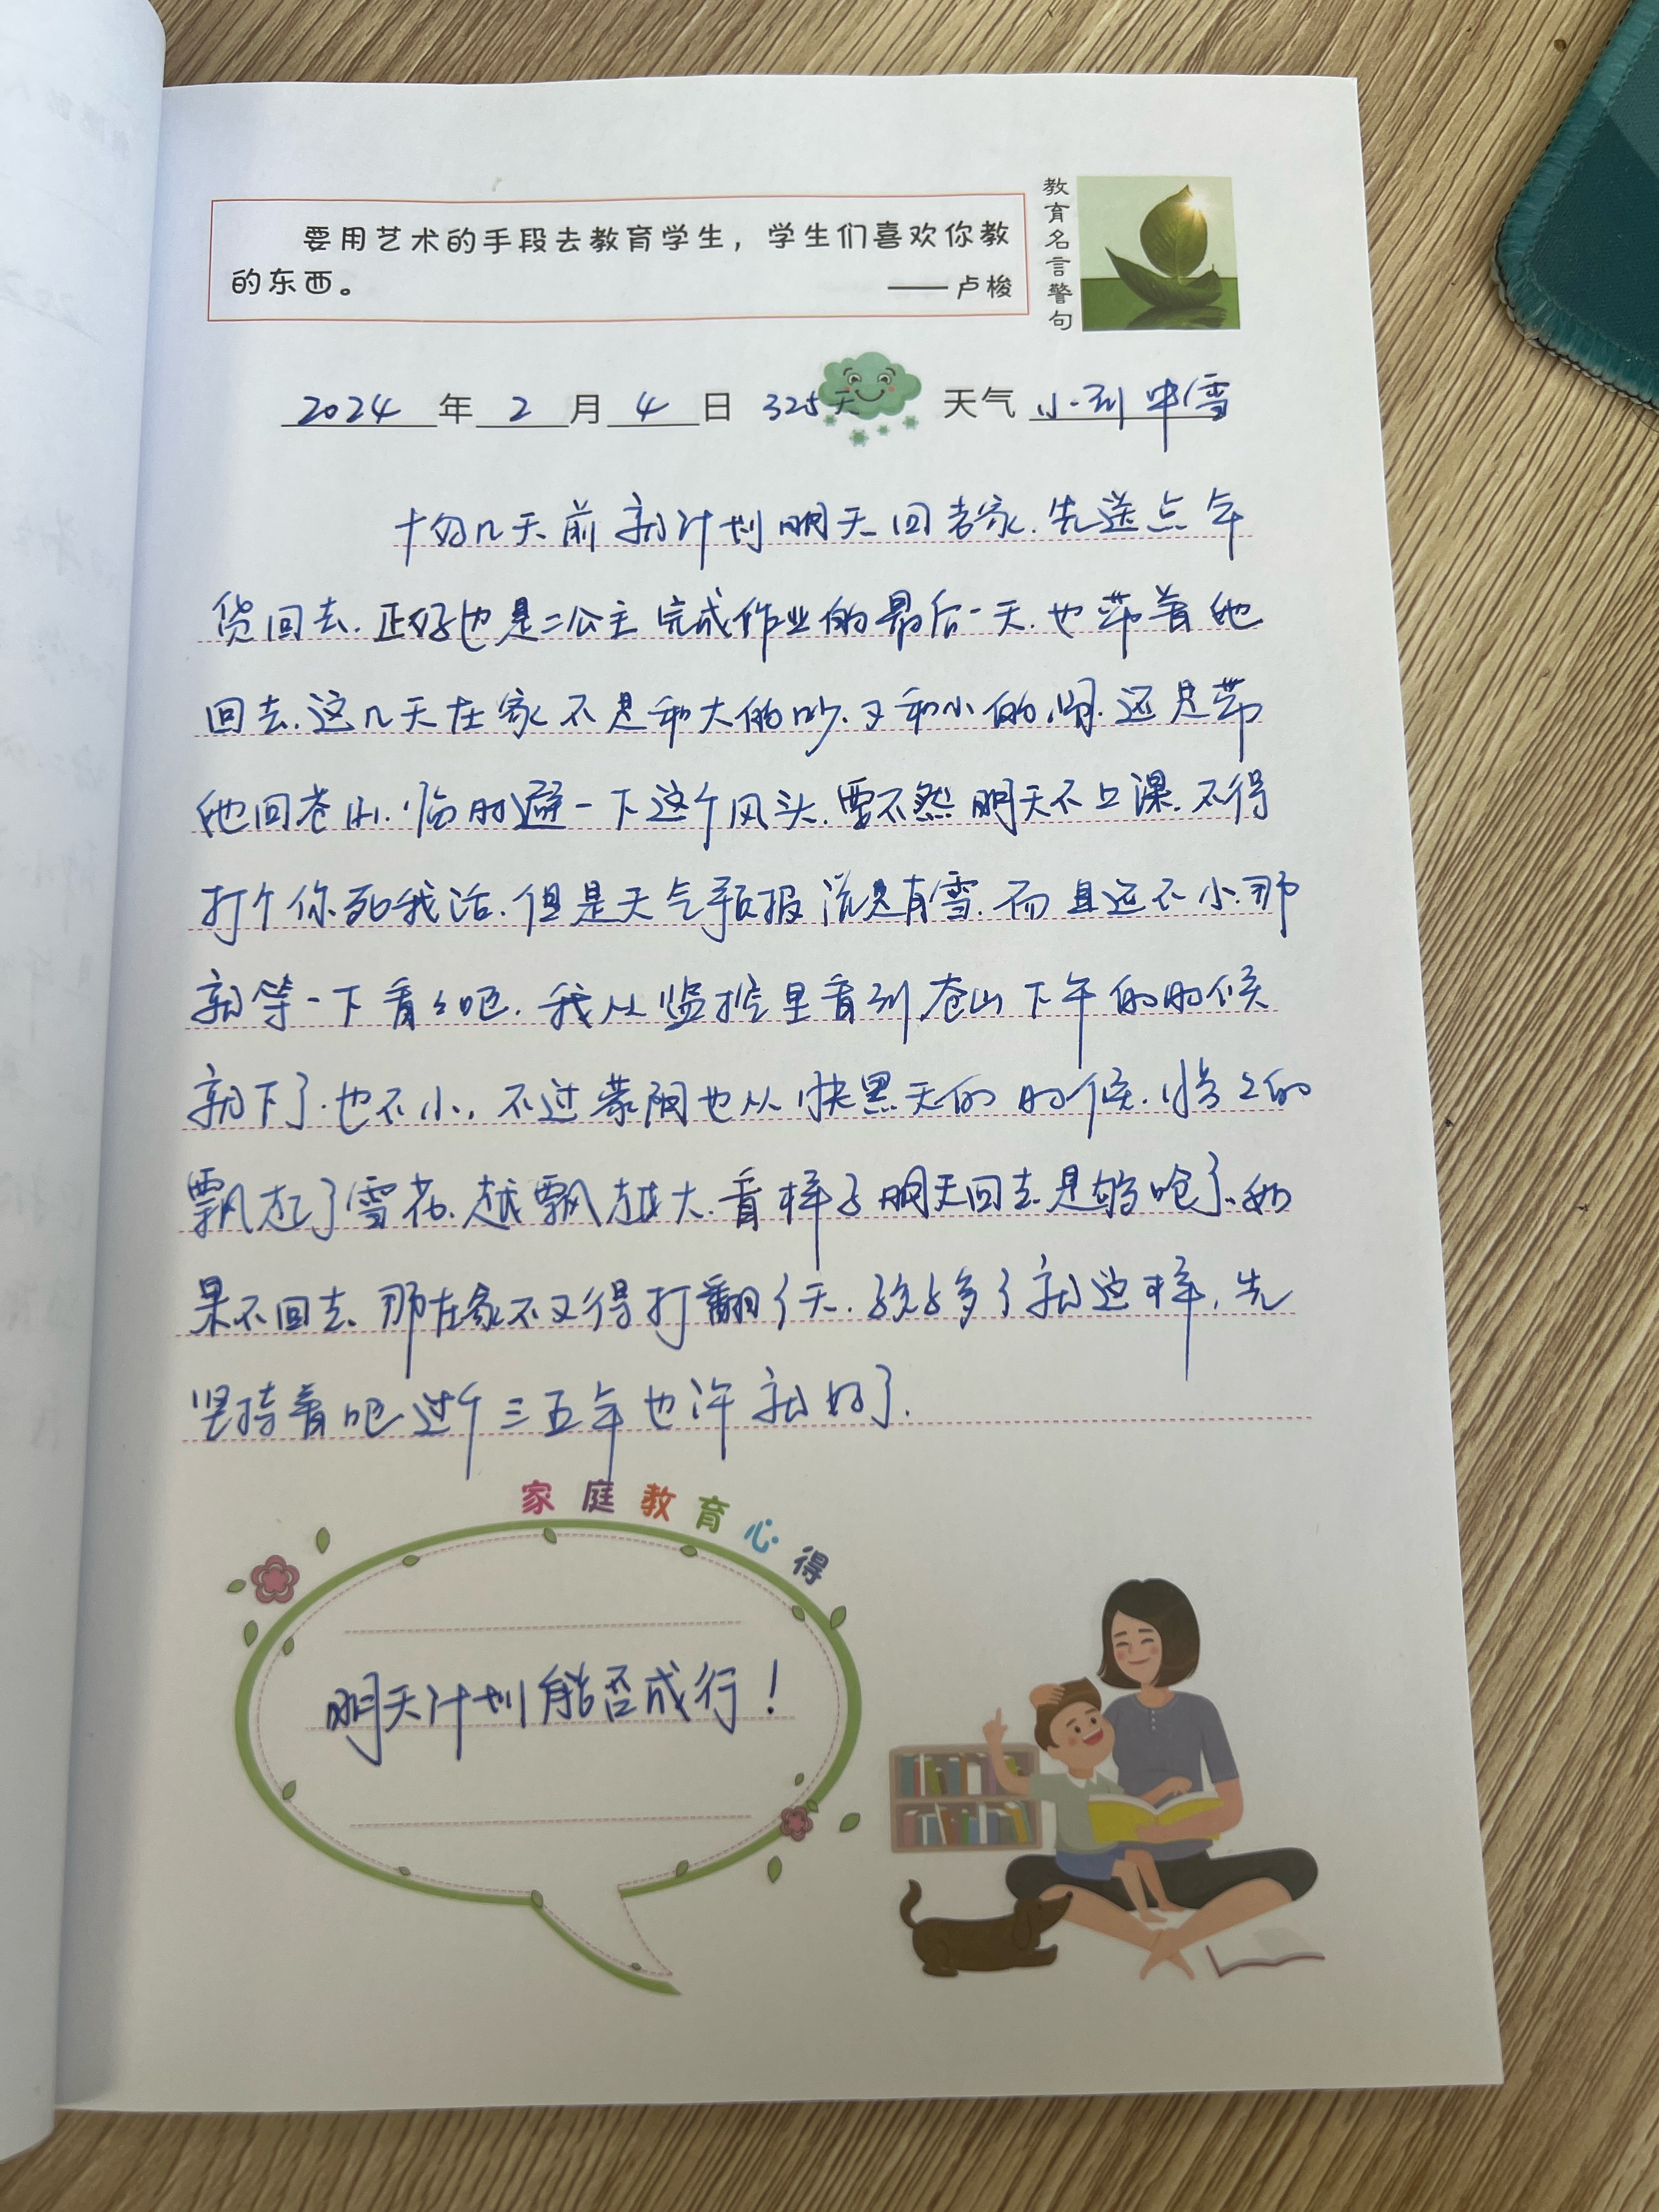 要用艺术的手段去教育学生，学生们喜欢你教
的东西。
——卢梭
教育名言警句
2024年2月4日 325天 天气 小到中雪
十好几天前就计划明天回老家.先送点年
货回去.正好也是二公主完成作业的最后一天.也带着她
回去.这几天在家不是和大的吵.又和小的闹.还是带
她回苍山.临时避一下这个风头.要不然明天不上课.不得
打个你死我活.但是天气预报说是有雪.而且还不小.那
就等一下看看吧.我从监控里看到苍山下午的时候
就下了.也不小.不过蒙阴也从快黑天的时候.慢慢的
飘起了雪花.越飘越大.看样子明天回去是够呛了.如
果不回去.那在家不又得打翻了天.孩子多了就这样,先
坚持着吧过个三五年也许就好了.
家庭教育心得
明天计划能否成行！